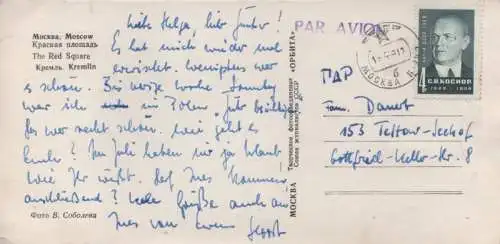 Москва. Moscow
Красная площадь
The Red Square
Кремль. Kremlin
Фото В. Соболева
Liebe Helga, lieber Günter!
Es hat mich wieder mal
erwischt. Wenigstens war
es schön. Bis vorige Woche Sonntag
war ich in Polen
Das war recht schön. Wie geht es
Euch? Im Juli haben wir ja Urlaub
wie Ihr wißt.
anschließend? Viele Grüße auch an
Ines von Eurem Horst
Творческая фотообъединение «ОРБИТА»
Союза журналистов СССР
МОСКВА
PAR AVION
МОСКВА
ПОЧТА СССР
С.В.КОСИОР
1889-1939
4
ГДР
Fam. Danert
153 Teltow-Seehof
Gottfried-Keller-Str. 8